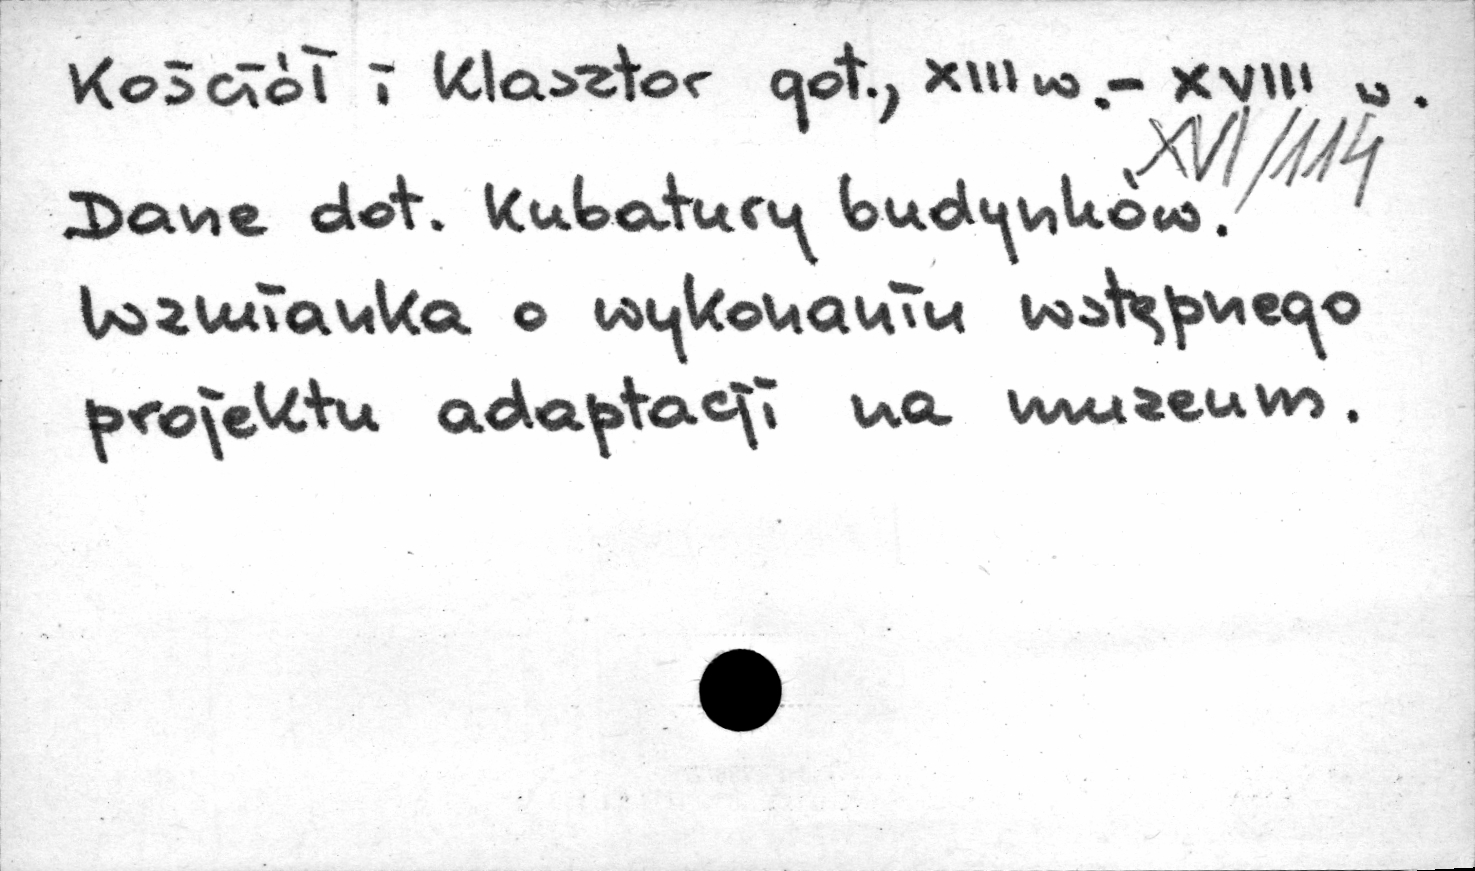 Kościół i klasztor got., XIII w. - XVIII w.
XVI/114
Dane dot. kubatury budynków.
Wzmianka o wykonaniu wstępnego
projektu adaptacji na muzeum.